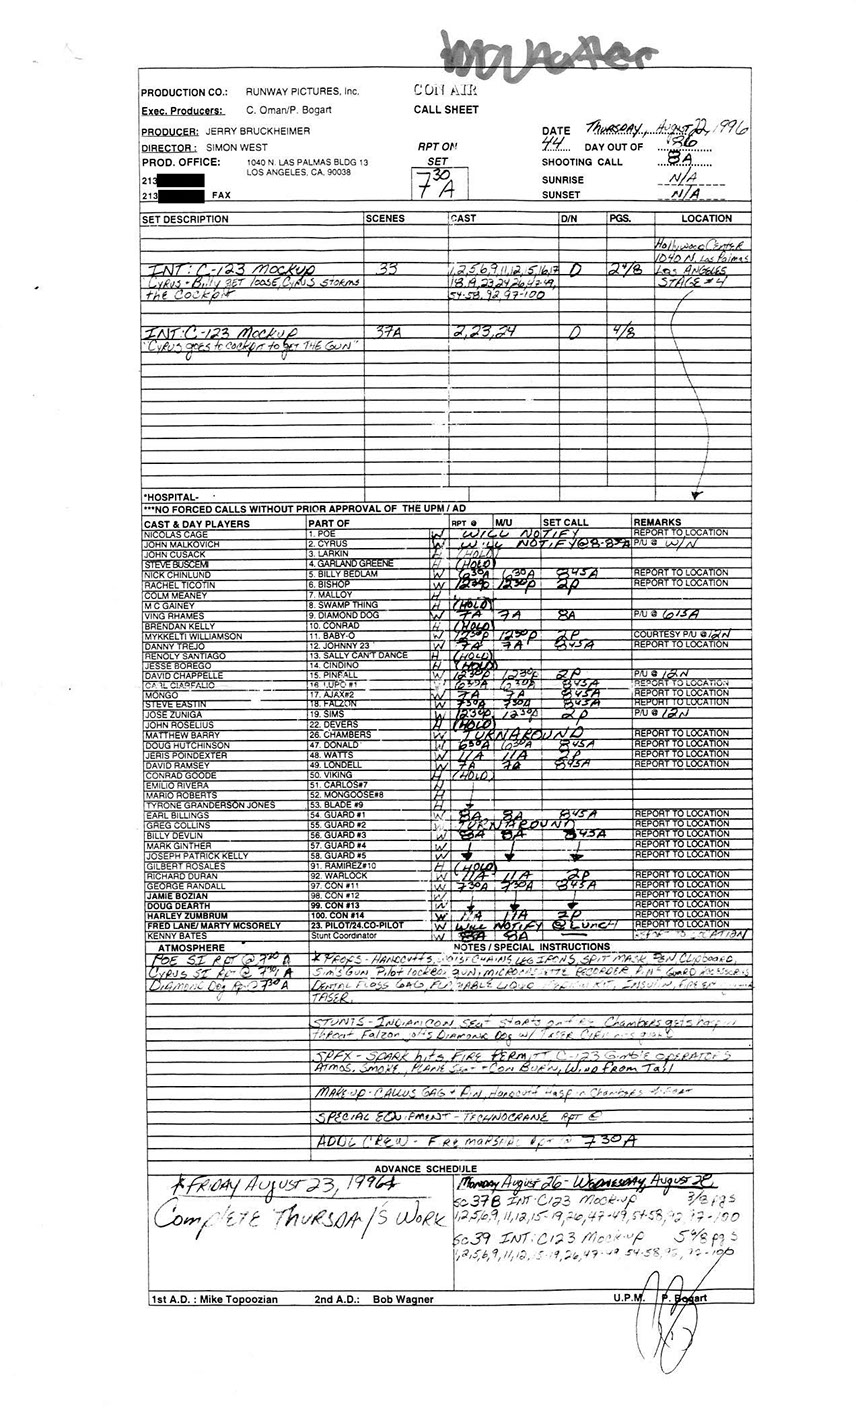 PRODUCTION CO.: RUNWAY PICTURES, Inc.
CON AIR
Exec. Producers: C. Oman/P. Bogart
CALL SHEET
PRODUCER: JERRY BRUCKHEIMER
DATE THURSDAY, August 22, 1996
DIRECTOR: SIMON WEST
RPT ON SET 7 30 A
44 DAY OUT OF 86
PROD. OFFICE: 1040 N. LAS PALMAS BLDG 13
LOS ANGELES, CA. 90038
SHOOTING CALL 8A
213
SUNRISE N/A
213 FAX
SUNSET N/A
SET DESCRIPTION SCENES CAST D/N PGS. LOCATION
Hollywood Center
1040 N. Las Palmas
INT: C-123 MOCKUP 33 1,2,5,6,9,11,12,15,16,17 D 2 4/8 Los ANGELES
CYRUS + Billy GET LOOSE, CYRUS STORMS 18,19,23,24,26,47-49, STAGE #4
the Cockpit 54-58, 92, 97-100
INT: C-123 Mockup 37A 2,23,24 D 4/8
"Cyrus goes to cockpit to get THE GUN"
*HOSPITAL-
***NO FORCED CALLS WITHOUT PRIOR APPROVAL OF THE UPM / AD
CAST & DAY PLAYERS PART OF RPT @ M/U SET CALL REMARKS
NICOLAS CAGE 1. POE W WILL NOTIFY REPORT TO LOCATION
JOHN MALKOVICH 2. CYRUS W WILL NOTIFY@8-830A P/U @ W/N
JOHN CUSACK 3. LARKIN H (HOLD)
STEVE BUSCEMI 4. GARLAND GREENE H (HOLD)
NICK CHINLUND 5. BILLY BEDLAM W 630A 630A 845A REPORT TO LOCATION
RACHEL TICOTIN 6. BISHOP W 1230p 1230p 2p REPORT TO LOCATION
COLM MEANEY 7. MALLOY H
M C GAINEY 8. SWAMP THING H (HOLD)
VING RHAMES 9. DIAMOND DOG W 7A 7A 8A P/U @ 615A
BRENDAN KELLY 10. CONRAD H (HOLD)
MYKKELTI WILLIAMSON 11. BABY-O W 1230p 1230p 2p COURTESY P/U @ 12N
DANNY TREJO 12. JOHNNY 23 W 7A 7A 845A REPORT TO LOCATION
RENOLY SANTIAGO 13. SALLY CAN'T DANCE H (HOLD)
JESSE BOREGO 14. CINDINO H (HOLD)
DAVID CHAPPELLE 15. PINBALL W 1230p 1230p 2p P/U @ 12N
16. LUPO #1 W 630A 630A 845A REPORT TO LOCATION
MONGO 17. AJAX#2 W 7A 7A 845A REPORT TO LOCATION
STEVE EASTIN 18. FALZON W 730A 730A 845A REPORT TO LOCATION
JOSE ZUNIGA 19. SIMS W 1230p 1230p 2p P/U @ 12N
JOHN ROSELIUS 22. DEVERS H (HOLD)
MATTHEW BARRY 26. CHAMBERS W TURNAROUND REPORT TO LOCATION
DOUG HUTCHINSON 47. DONALD W 630A 630A 845A REPORT TO LOCATION
JERIS POINDEXTER 48. WATTS W 11A 11A 2p REPORT TO LOCATION
DAVID RAMSEY 49. LONDELL W 7A 7A 845A REPORT TO LOCATION
CONRAD GOODE 50. VIKING H (HOLD)
EMILIO RIVERA 51. CARLOS#7 H
MARIO ROBERTS 52. MONGOOSE#8 H
TYRONE GRANDERSON JONES 53. BLADE #9 H
EARL BILLINGS 54. GUARD #1 W 8A 8A 845A REPORT TO LOCATION
GREG COLLINS 55. GUARD #2 TURNAROUND REPORT TO LOCATION
BILLY DEVLIN 56. GUARD #3 W 8A 8A 845A REPORT TO LOCATION
MARK GINTHER 57. GUARD #4 W REPORT TO LOCATION
JOSEPH PATRICK KELLY 58. GUARD #5 W REPORT TO LOCATION
GILBERT ROSALES 91. RAMIREZ#10 H (HOLD)
RICHARD DURAN 92. WARLOCK W 11A 11A 2p REPORT TO LOCATION
GEORGE RANDALL 97. CON #11 W 730A 730A 845A REPORT TO LOCATION
JAMIE BOZIAN 98. CON #12 W REPORT TO LOCATION
DOUG DEARTH 99. CON #13 W REPORT TO LOCATION
HARLEY ZUMBRUM 100. CON #14 W 11A 11A 2p REPORT TO LOCATION
FRED LANE/ MARTY MCSORELY 23. PILOT/24.CO-PILOT W WILL NOTIFY @ Lunch REPORT TO LOCATION
KENNY BATES Stunt Coordinator W 8A 8A
ATMOSPHERE NOTES / SPECIAL INSTRUCTIONS
POE SI RPT @ 730 A * PROPS - HANDCUFFS, WAIST CHAINS, LEG IRONS, SPIT MASK, PEN, CLIPBOARD,
CYRUS SI RPT @ 730 A Sim's GUN, Pilot lockbox, GUN, MICROCASSETTE RECORDER,
Diamond Dog Rpt @ 730A DENTAL FLOSS GAG, INSULIN,
TASER,
STUNTS - INDIAN CON, SEAT Chambers gets
throat, Falzon jolts DIAMOND Dog w/ TASER
SPFX - SPARK hits, FIRE PERMIT, C-123 Gimble OPERATORS
ATMOS. SMOKE, Burn, Wind From Tail
MAKEUP - CALLUS GAG + Pin, Handcuff Hasp in Chambers throat
SPECIAL EQUIPMENT - TECHNOCRANE RPT @
ADDL CREW - Fire marshal Rpt @ 730A
ADVANCE SCHEDULE
*FRIDAY August 23, 1996* Monday August 26 - WEDNESDAY, August 28
COMPLETE THURSDAY'S WORK sc 37B INT: C123 Mock-up 3/8 pgs
1,2,5,6,9,11,12,15-19,26,47-49,54-58,92,97-100
sc 39 INT: C123 Mock-up 5 4/8 pgs
1,2,5,6,9,11,12,15-19,26,47-49 54-58,92, 97-100
1st A.D. : Mike Topoozian 2nd A.D.: Bob Wagner U.P.M. P. Bogart